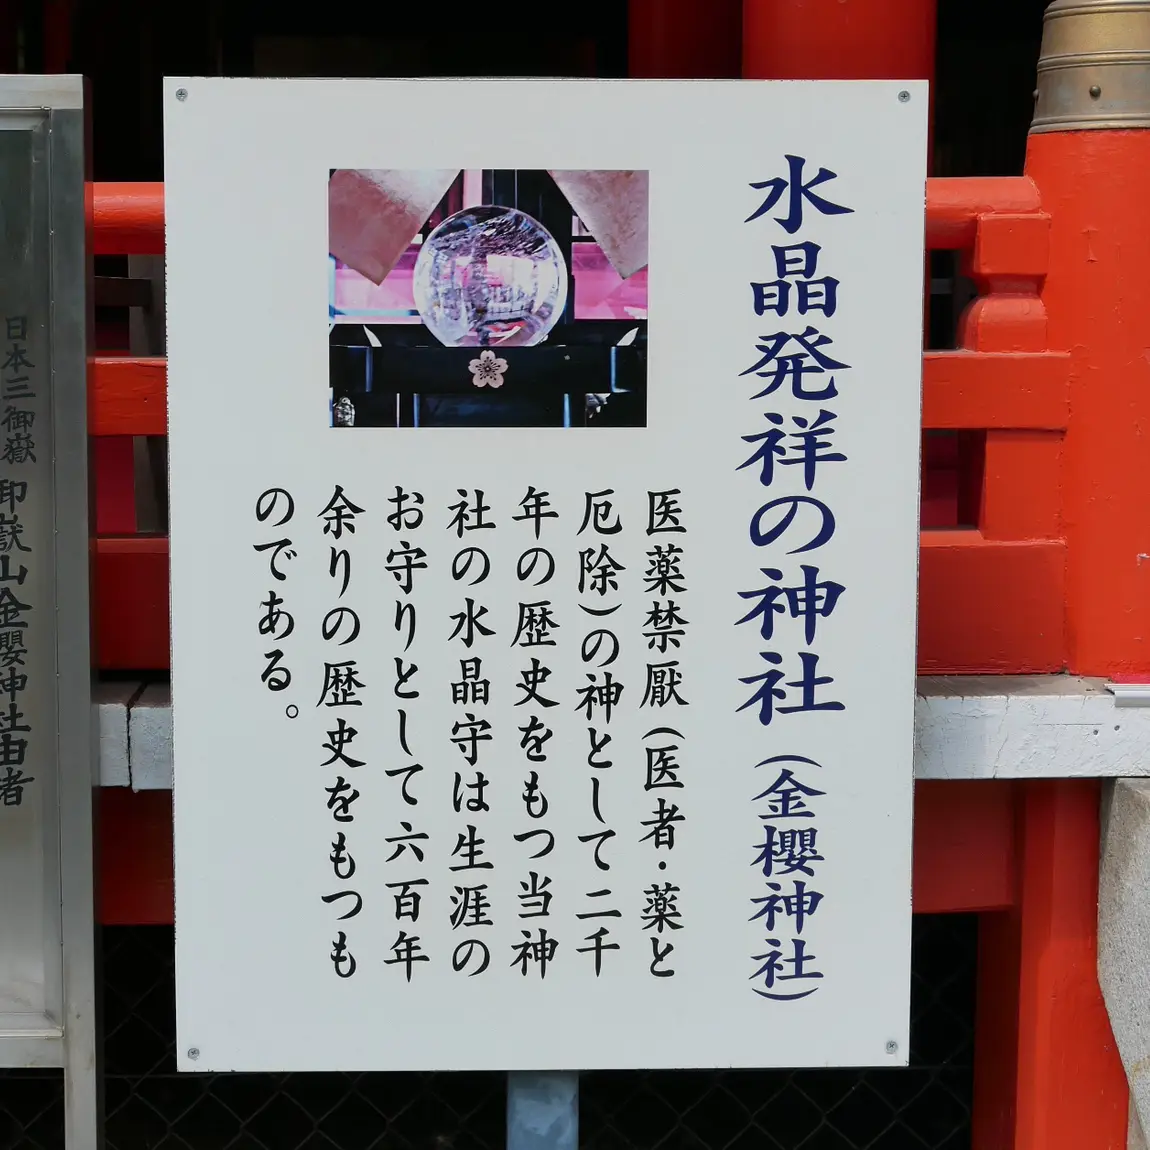 水晶発祥の神社（金櫻神社）
医薬禁厭（医者・薬と
厄除）の神として二千
年の歴史をもつ当神
社の水晶守は生涯の
お守りとして六百年
余りの歴史をもつも
のである。
日本三御嶽 御嶽山金櫻神社由者